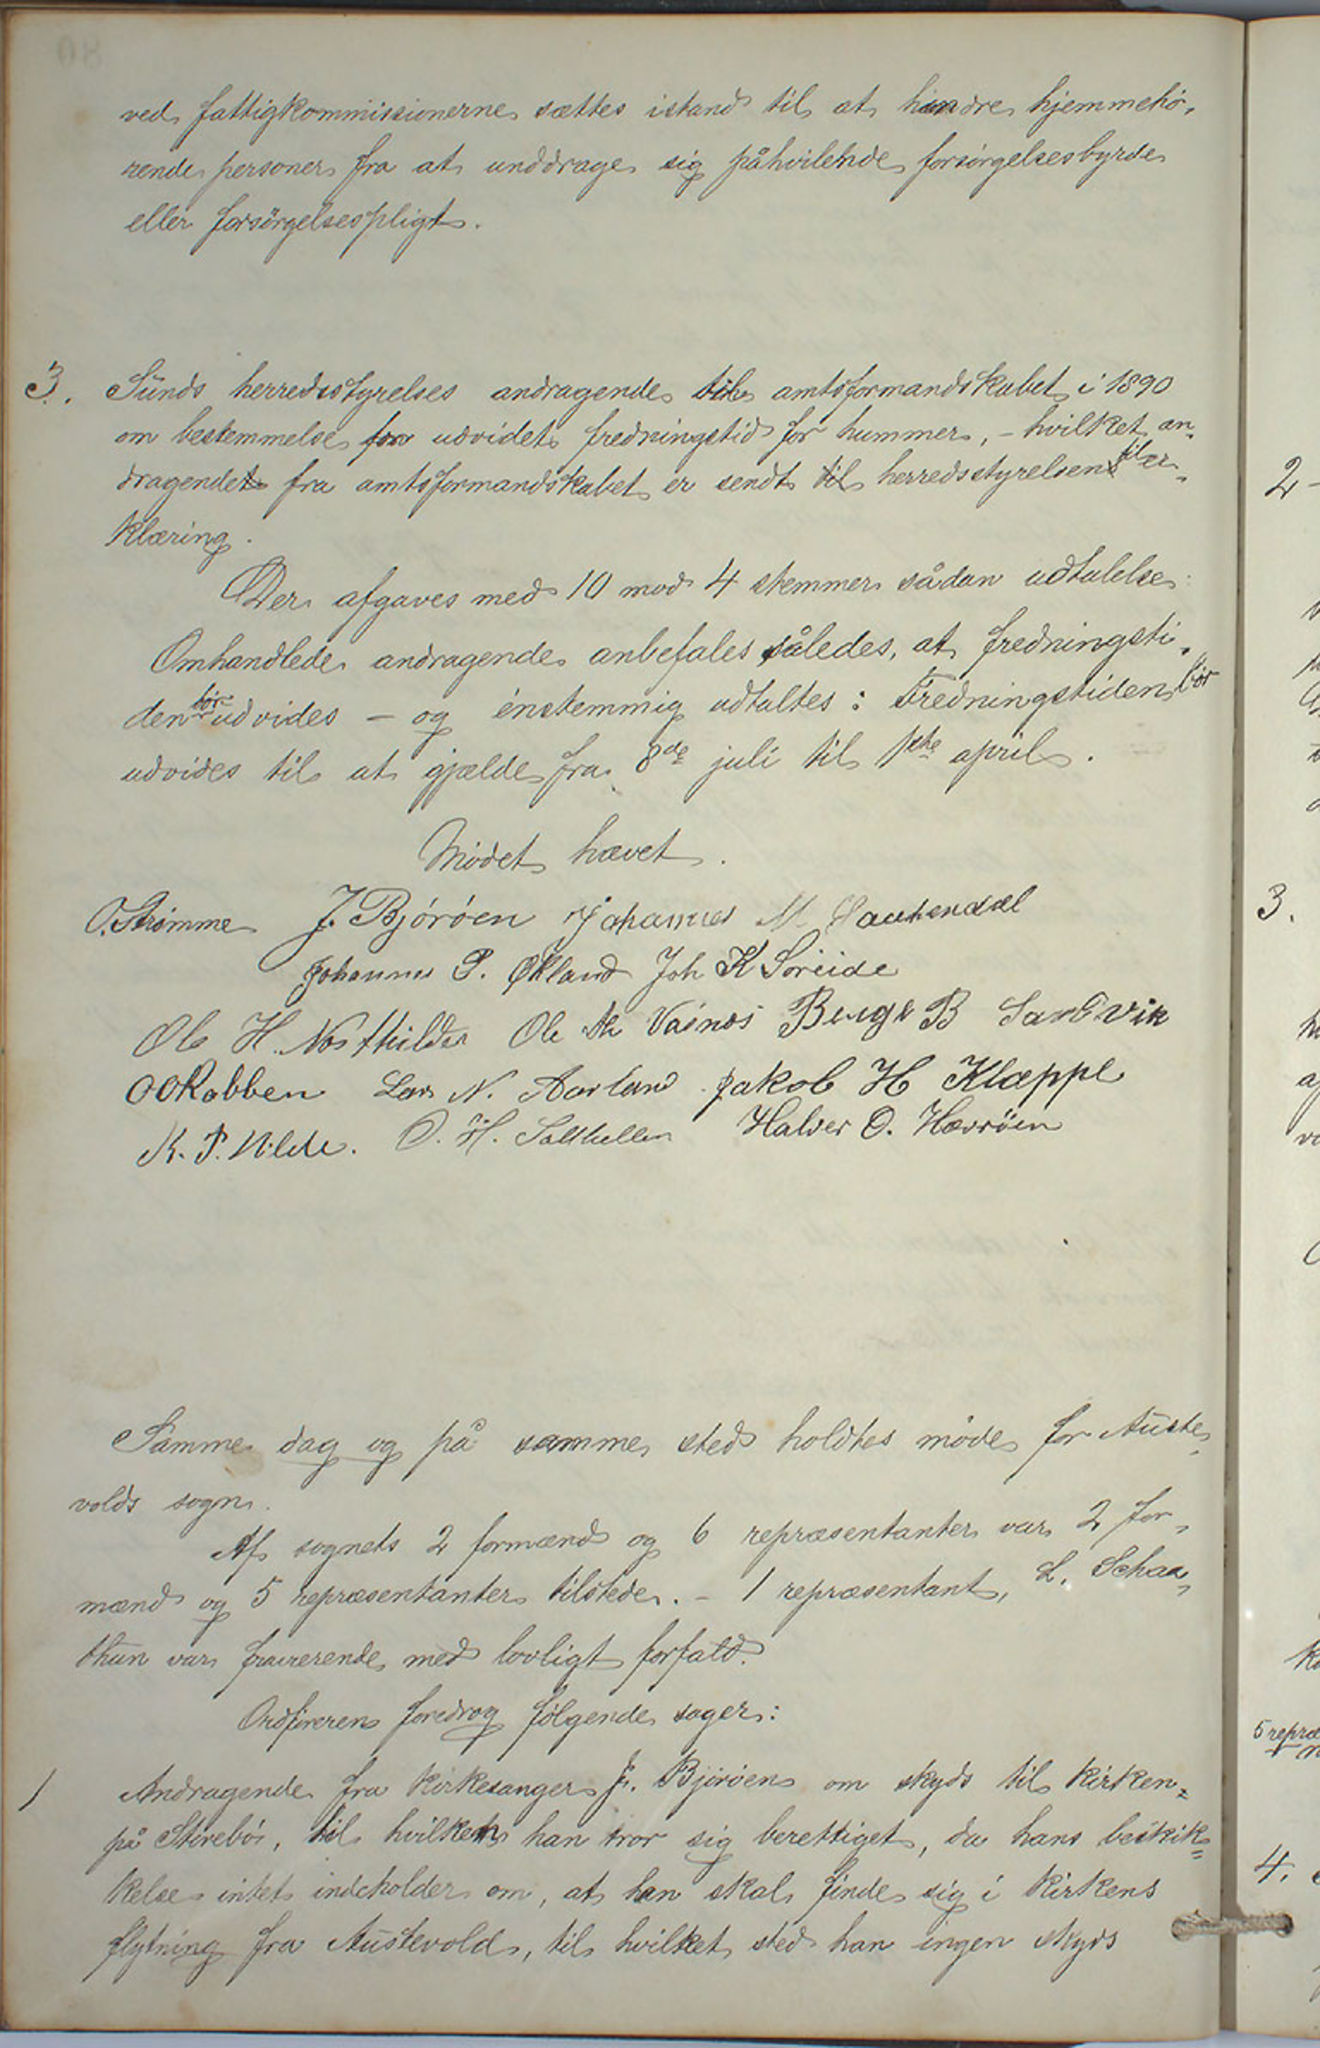 ved fattigkommissionerne sættes istand til at hindre hjemmehø-
rende personer fra at unddrage sig påhvilende forsørgelsesbyrde
eller forsørgelsespligt.
3. Sunds herredsstyrelses andragende til amtsformandskabet i 1890
om bestemmelse for udvidet fredningstid for hummer, - hvilket an-
dragende fra amtsformandskabet er sendt herredsstyrelsen til er-
klæring.
Der afgaves med 10 mod 4 stemmer sådan udtalelse:
Omhandlede andragende anbefales således, at fredningsti-
den bør udvides - og enstemmig udtaltes: Fredningstiden bør
udvides til at gjælde fra 8de juli til 1ste april.
Mødet hævet.
O. Strømme J. Bjórøen Johannes M.
Johannes P. Økland Joh K Søreide
Ole H. Ole Vaines Berge B Sandvik
O O Rabben Lars N. Aarland Jakob H Klæppe
K. P. Vilde. O. H. Salthellen Halver O. Hævrøen
Samme dag og på samme sted holdtes møde for Auste-
volds sogn.
Af sognets 2 formænd og 6 repræsentanter var 2 for-
mænd og 5 repræsentanter tilstede. - 1 repræsentant, L. Schaa-
thun var fraværende med lovligt forfald.
Ordføreren foredrog følgende sager:
1 Andragende fra kirkesanger J. Bjørøen om skyds til kirken
på Storebø, til hvilken han tror sig berettiget, da hans beskik-
kelse intet indeholder om, at han skal finde sig i kirkens
flytning fra Austevold, til hvilket sted han ingen skyds
2 -
3.
5 repræ
4.